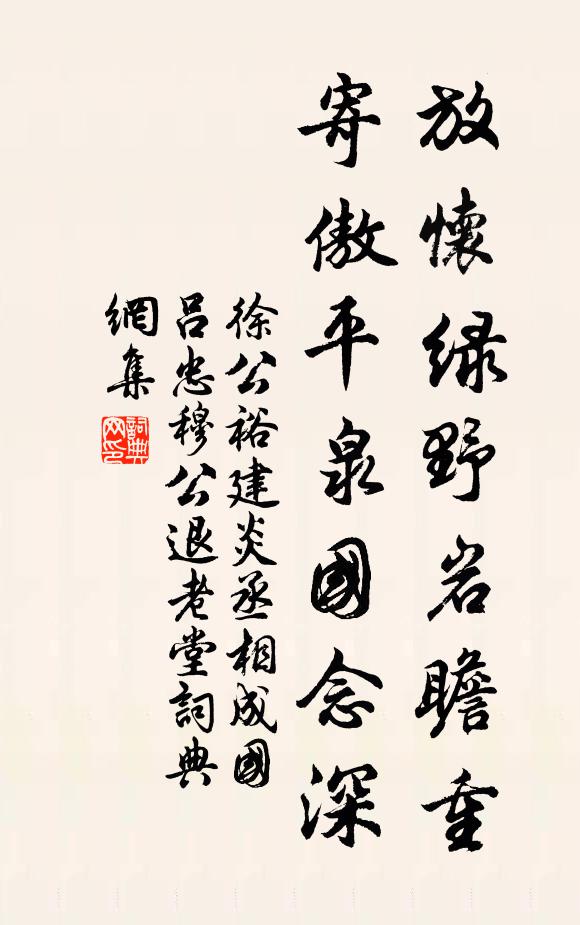 放懷绿野岩瞻重
寄傲平泉國念深
徐公裕建炎丞相成國
吕忠穆公退老堂詞典
網集
詞典
网印